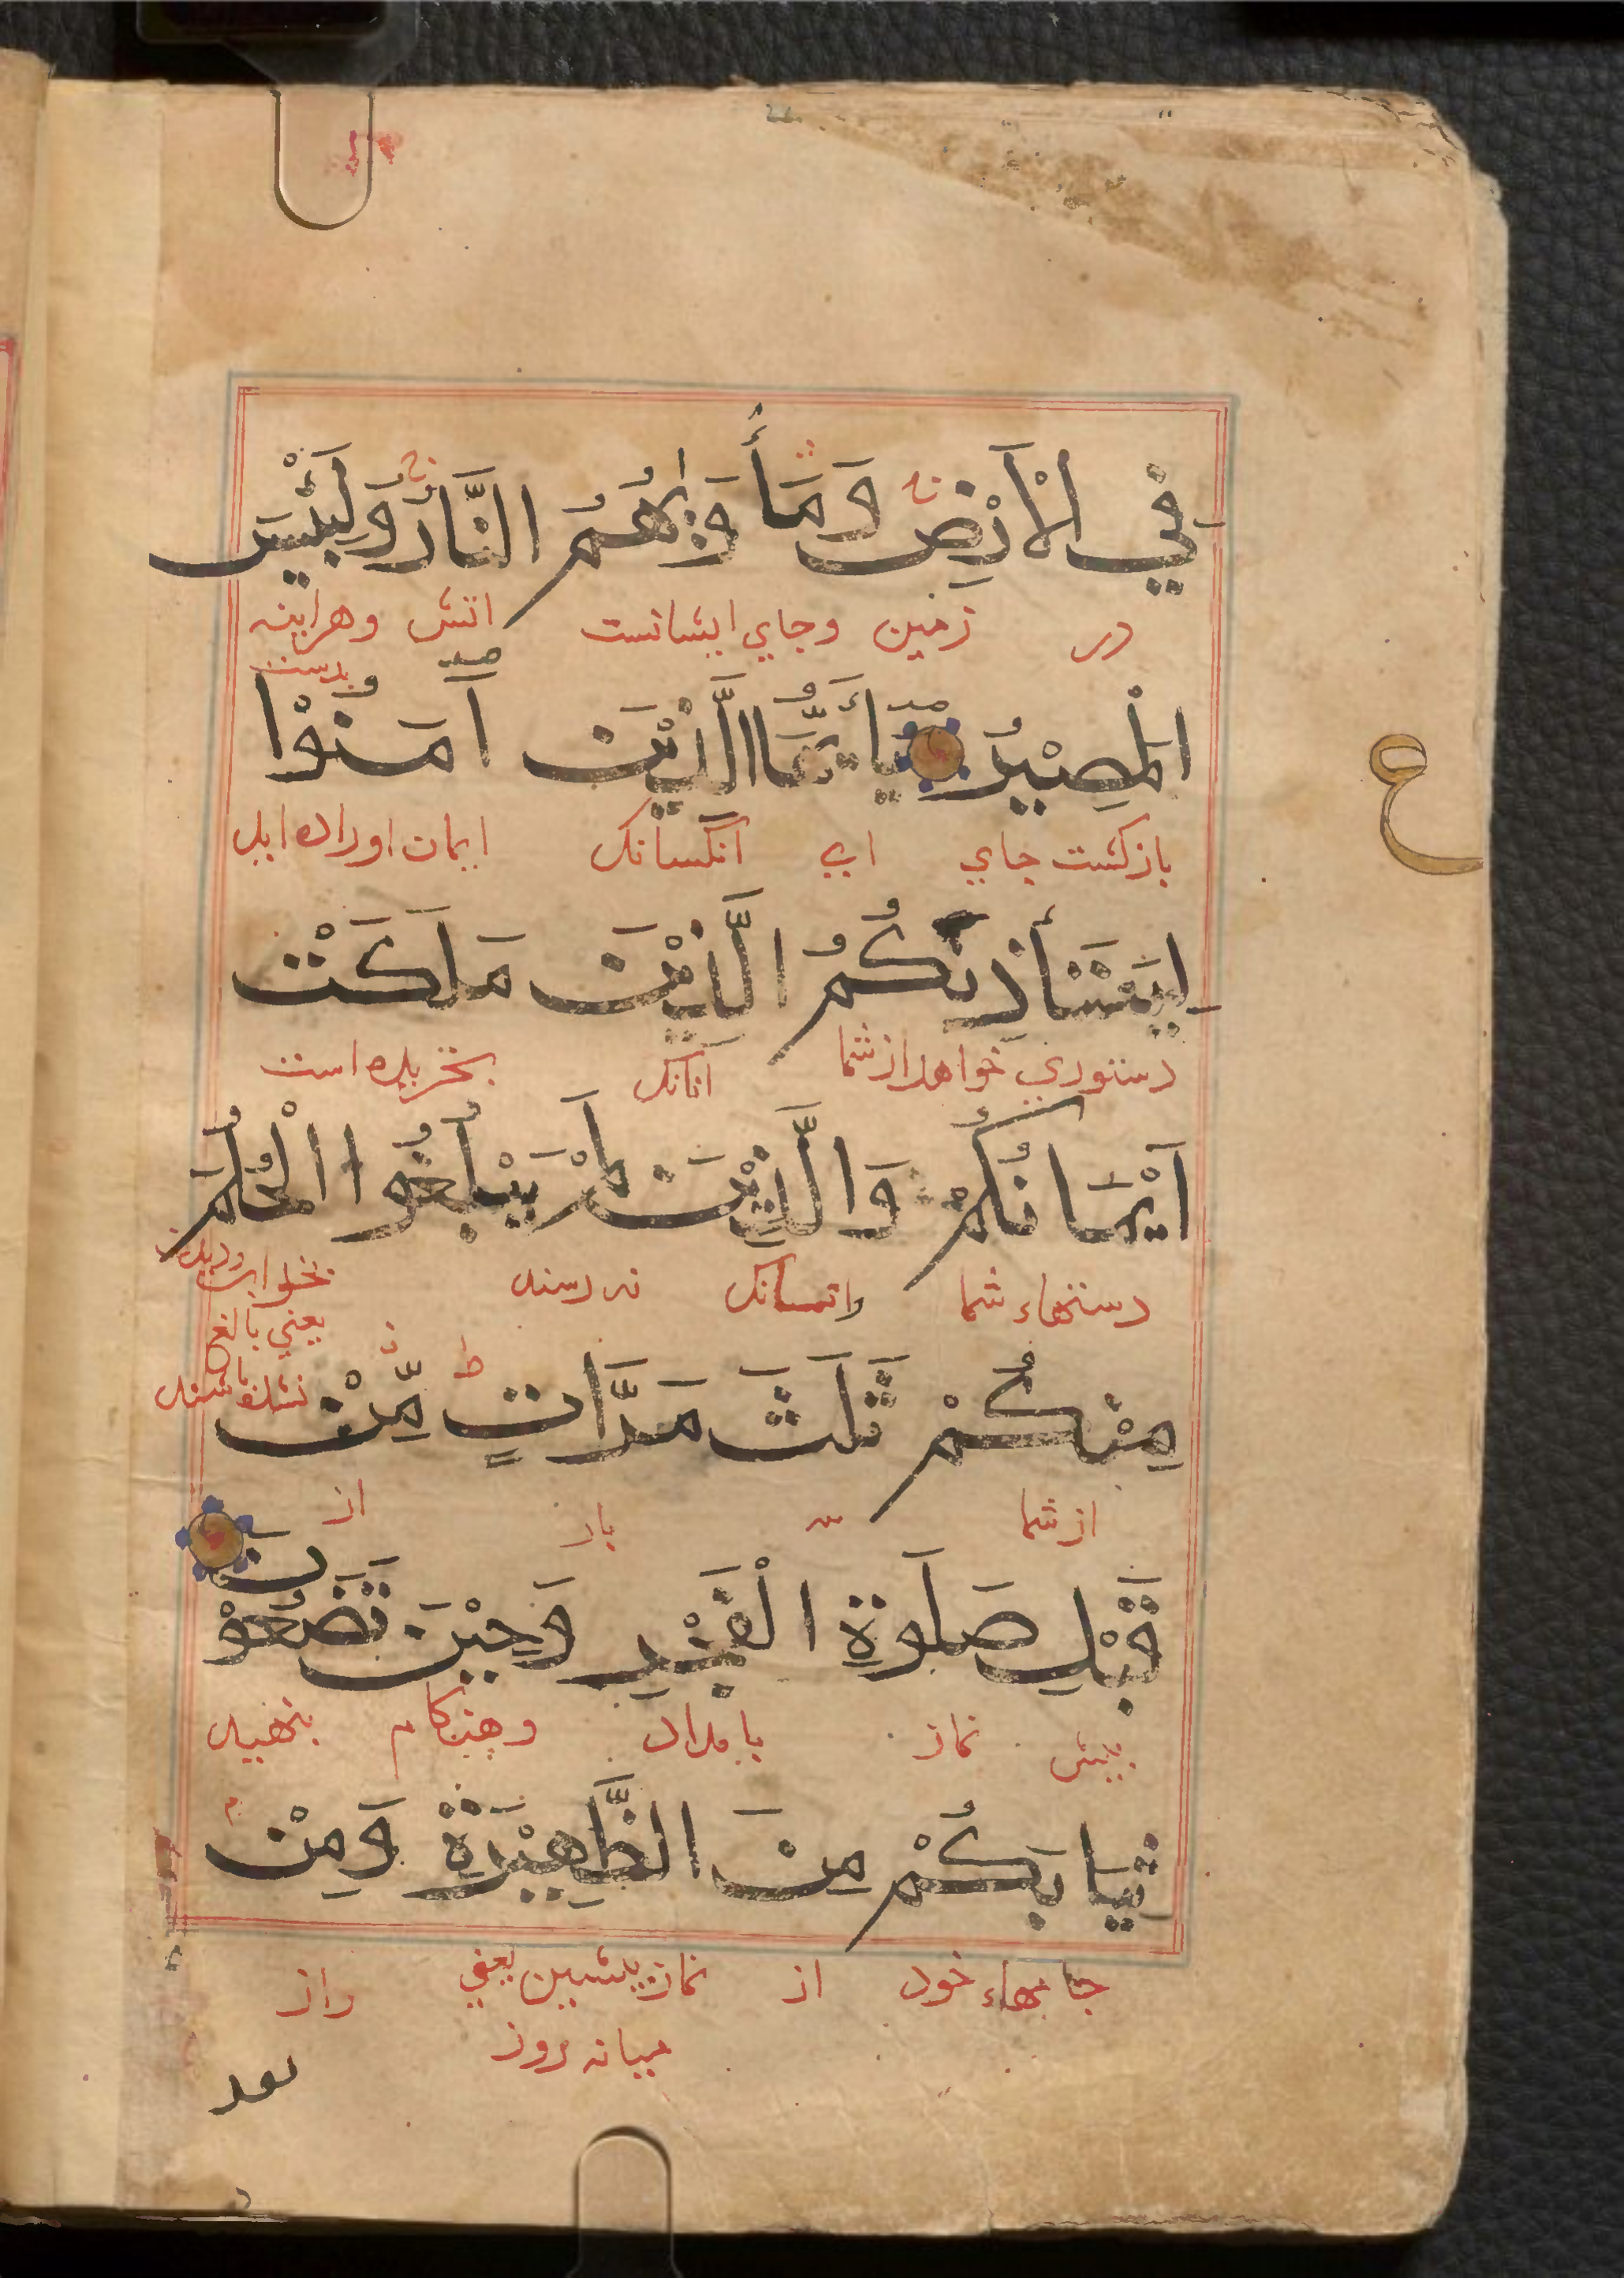 فِي الْأَرْضِ وَمَأْوَىٰهُمُ النَّارُ وَلَبِئْسَ
در زمین وجاي ایشانست اتش وهراینه بدست
الْمَصِيْرُ يَا أَيُّهَا الَّذِيْنَ آمَنُوْا
بازکشت جاي اي انکسانک ایمان اورده اید
لِيَسْتَأْذِنْكُمُ الَّذِيْنَ مَلَكَتْ
دستوري خواهد از شما انانک بخریده است
أَيْمَانُكُمْ وَالَّذِيْنَ لَمْ يَبْلُغُوا الْحُلُمَ
دستهاء شما وانکسانک نه رسند بخواب
یعني بالغ
نشده باشند
مِنْكُمْ ثَلٰثَ مَرَّاتٍ مِّنْ
از شما سه بار از
قَبْلِ صَلٰوةِ الْفَجْرِ وَحِيْنَ تَضَعُوْنَ
پیش نماز بامداد وهنکام بنهید
ثِيَابَكُمْ مِنَ الظَّهِيْرَةِ وَمِنْ
جامهاء خود از نماز پیشین یعني واز
میانه روز
بعد
ع